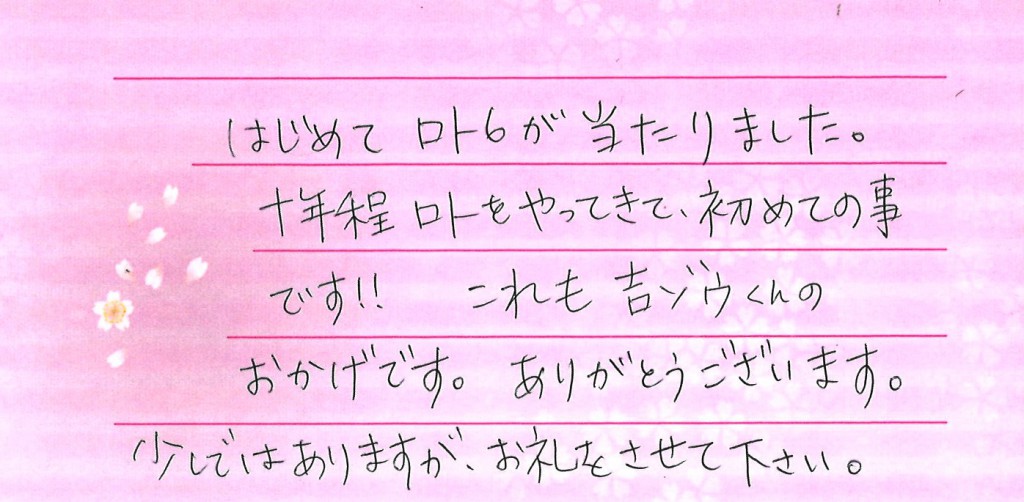 はじめて ロト6が 当たりました。
十年程 ロトをやってきて、初めての事
です!! これも 吉ゾウくんの
おかげです。 ありがとうございます。
少しではありますが、お礼をさせて下さい。